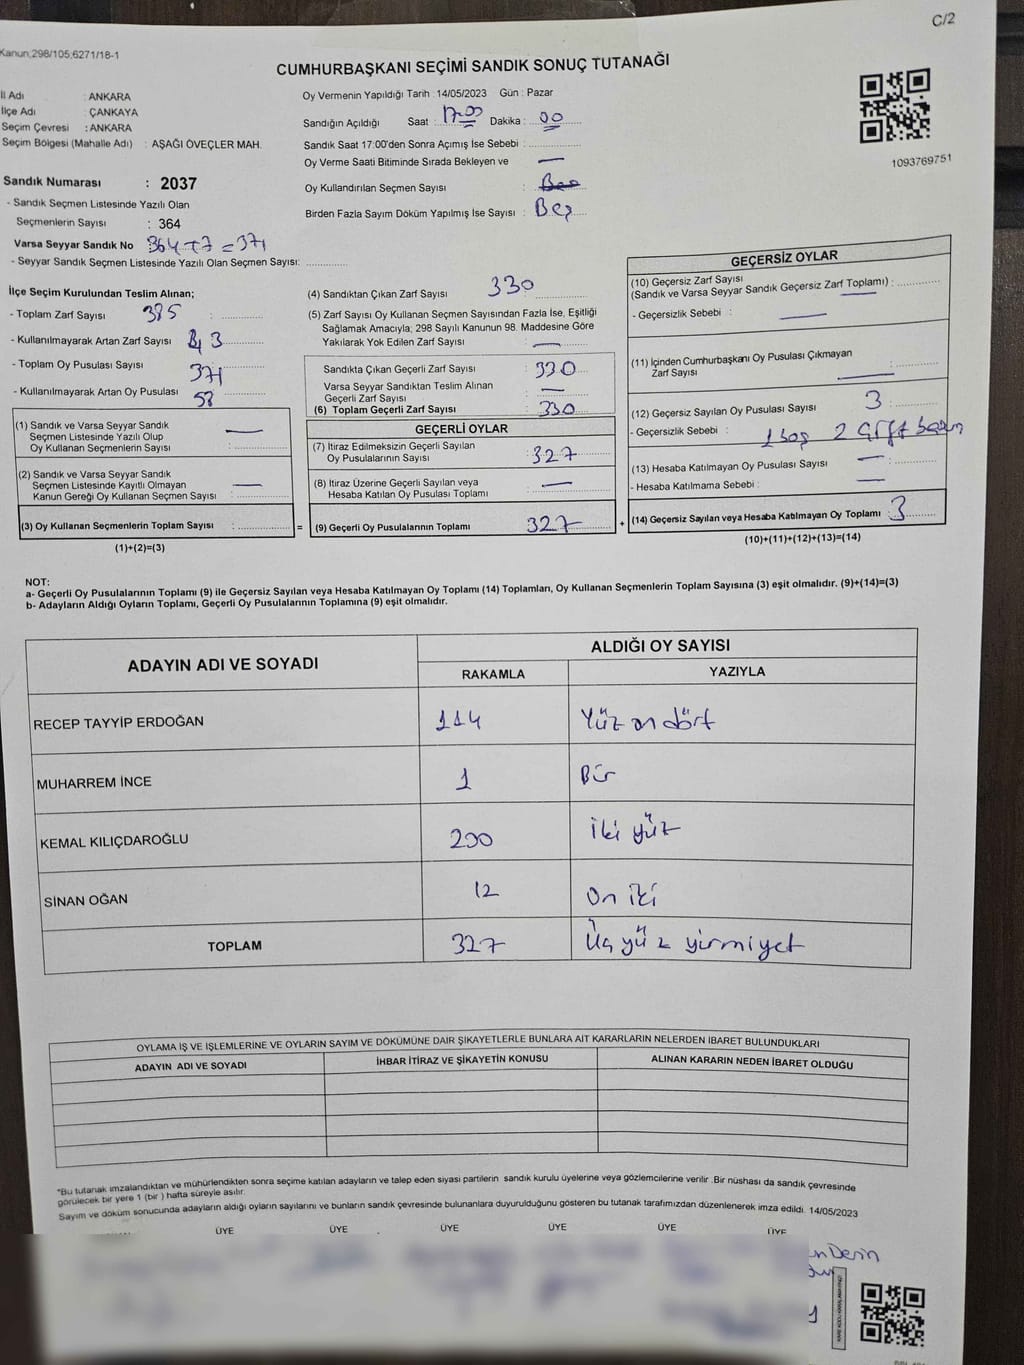 C/2
Kanun,298/105,6271/18-1
CUMHURBAŞKANI SEÇİMİ SANDIK SONUÇ TUTANAĞI
İl Adı : ANKARA
İlçe Adı : ÇANKAYA
Seçim Çevresi : ANKARA
Seçim Bölgesi (Mahalle Adı) : AŞAĞI ÖVEÇLER MAH.
Sandık Numarası : 2037
- Sandık Seçmen Listesinde Yazılı Olan
Seçmenlerin Sayısı : 364
Varsa Seyyar Sandık No 364+7=371
- Seyyar Sandık Seçmen Listesinde Yazılı Olan Seçmen Sayısı:
Oy Vermenin Yapıldığı Tarih : 14/05/2023 Gün : Pazar
Sandığın Açıldığı Saat : 17.00 Dakika : 00
Sandık Saat 17:00'den Sonra Açımış İse Sebebi :
Oy Verme Saati Bitiminde Sırada Bekleyen ve —
Oy Kullandırılan Seçmen Sayısı :
Birden Fazla Sayım Döküm Yapılmış İse Sayısı : Beş
1093769751
İlçe Seçim Kurulundan Teslim Alınan;
- Toplam Zarf Sayısı : 385
- Kullanılmayarak Artan Zarf Sayısı : 3
- Toplam Oy Pusulası Sayısı : 371
- Kullanılmayarak Artan Oy Pusulası
(1) Sandık ve Varsa Seyyar Sandık
Seçmen Listesinde Yazılı Olup
Oy Kullanan Seçmenlerin Sayısı : —
(2) Sandık ve Varsa Seyyar Sandık
Seçmen Listesinde Kayıtlı Olmayan
Kanun Gereği Oy Kullanan Seçmen Sayısı : —
(3) Oy Kullanan Seçmenlerin Toplam Sayısı : =
(1)+(2)=(3)
(4) Sandıktan Çıkan Zarf Sayısı : 330
(5) Zarf Sayısı Oy Kullanan Seçmen Sayısından Fazla İse, Eşitliği
Sağlamak Amacıyla; 298 Sayılı Kanunun 98. Maddesine Göre
Yakılarak Yok Edilen Zarf Sayısı : —
Sandıkta Çıkan Geçerli Zarf Sayısı : 330
Varsa Seyyar Sandıktan Teslim Alınan
Geçerli Zarf Sayısı : —
(6) Toplam Geçerli Zarf Sayısı : 330
GEÇERLİ OYLAR
(7) İtiraz Edilmeksizin Geçerli Sayılan
Oy Pusulalarının Sayısı : 327
(8) İtiraz Üzerine Geçerli Sayılan veya
Hesaba Katılan Oy Pusulası Toplamı : —
(9) Geçerli Oy Pusulalarının Toplamı : 327 +
GEÇERSİZ OYLAR
(10) Geçersiz Zarf Sayısı
(Sandık ve Varsa Seyyar Sandık Geçersiz Zarf Toplamı) : —
- Geçersizlik Sebebi : —
(11) İçinden Cumhurbaşkanı Oy Pusulası Çıkmayan
Zarf Sayısı : —
(12) Geçersiz Sayılan Oy Pusulası Sayısı : 3
- Geçersizlik Sebebi : 1 boş 2 çift basım
(13) Hesaba Katılmayan Oy Pusulası Sayısı : —
- Hesaba Katılmama Sebebi : —
(14) Geçersiz Sayılan veya Hesaba Katılmayan Oy Toplamı : 3
(10)+(11)+(12)+(13)=(14)
NOT:
a- Geçerli Oy Pusulalarının Toplamı (9) ile Geçersiz Sayılan veya Hesaba Katılmayan Oy Toplamı (14) Toplamları, Oy Kullanan Seçmenlerin Toplam Sayısına (3) eşit olmalıdır. (9)+(14)=(3)
b- Adayların Aldığı Oyların Toplamı, Geçerli Oy Pusulalarının Toplamına (9) eşit olmalıdır.
ADAYIN ADI VE SOYADI ALDIĞI OY SAYISI
RAKAMLA YAZIYLA
RECEP TAYYİP ERDOĞAN 114 Yüz on dört
MUHARREM İNCE 1 Bir
KEMAL KILIÇDAROĞLU 200 İki yüz
SİNAN OĞAN 12 On iki
TOPLAM 327 Üç yüz yirmiyet
OYLAMA İŞ VE İŞLEMLERİNE VE OYLARIN SAYIM VE DÖKÜMÜNE DAİR ŞİKAYETLERLE BUNLARA AİT KARARLARIN NELERDEN İBARET BULUNDUKLARI
ADAYIN ADI VE SOYADI İHBAR İTİRAZ VE ŞİKAYETİN KONUSU ALINAN KARARIN NEDEN İBARET OLDUĞU
"Bu tutanak imzalandıktan ve mühürlendikten sonra seçime katılan adayların ve talep eden siyasi partilerin sandık kurulu üyelerine veya gözlemcilerine verilir .Bir nüshası da sandık çevresinde
görülecek bir yere 1 (bir ) hafta süreyle asılır.
Sayım ve döküm sonucunda adayların aldığı oyların sayılarını ve bunların sandık çevresinde bulunanlara duyurulduğunu gösteren bu tutanak tarafımızdan düzenlenerek imza edildi. 14/05/2023
ÜYE ÜYE ÜYE ÜYE ÜYE ÜYE